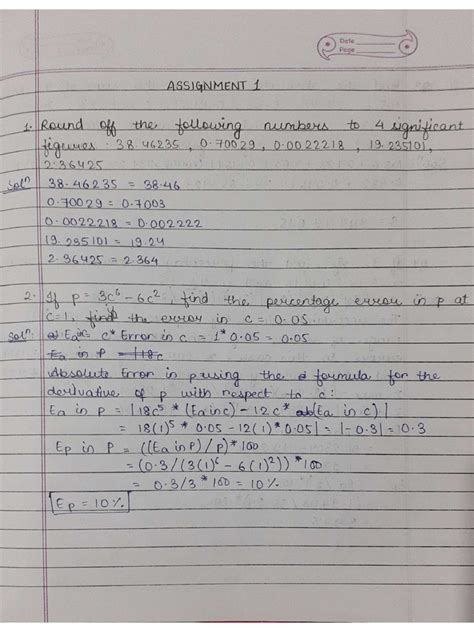 Date
Page
ASSIGNMENT 1
1. Round off the following numbers to 4 significant
figures: 38.46235, 0.70029, 0.0022218, 19.235101,
2.36425
Solⁿ 38.46235 = 38.46
0.70029 = 0.7003
0.0022218 = 0.002222
19.235101 = 19.24
2.36425 = 2.364
2. If p = 3c⁶ - 6c², find the percentage error in p at
c=1, if the error in c = 0.05.
Solⁿ. Ea in c = c* Error in c = 1* 0.05 = 0.05
Ea in p = 18c
Absolute Error in p using the formula for the
derivative of p with respect to c:
Ea in p = |18c⁵ * (Ea in c) - 12c * (Ea in c)|
= 18(1)⁵ * 0.05 - 12(1) * 0.05| = |-0.3| = 0.3
Ep in P = ((Ea in P)/p)* 100
= (0.3/(3(1)⁶ - 6(1)²)) * 100
= 0.3/3 * 100 = 10%
Ep = 10%